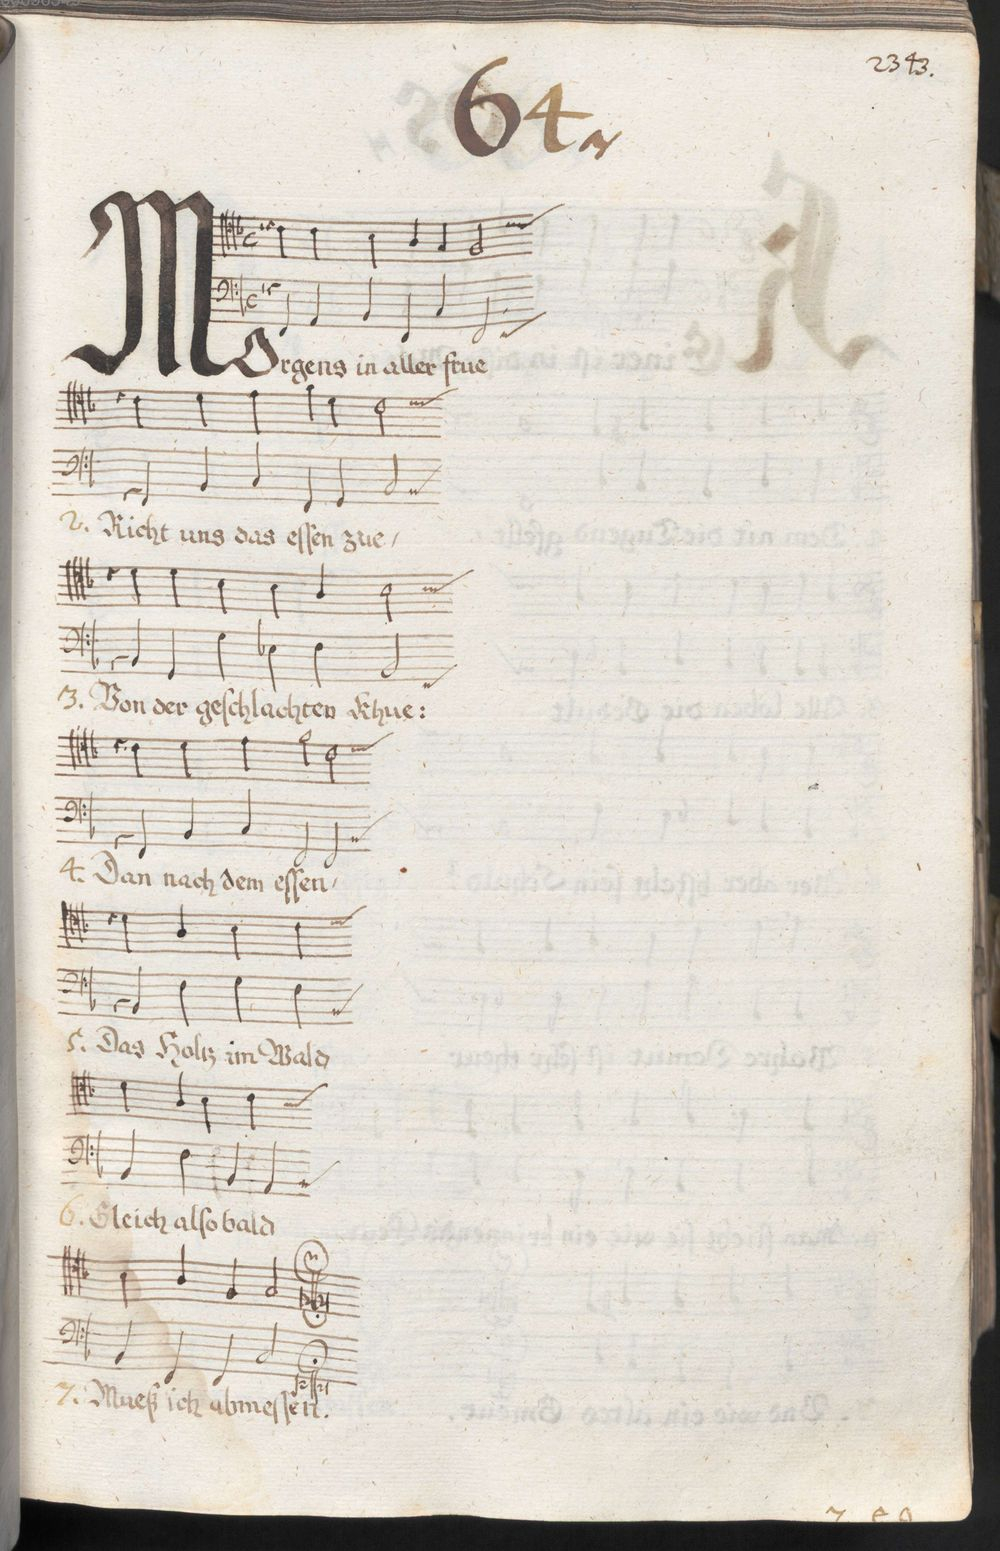 2343.
64
MOrgens in aller frue
2. Richt uns das essen zue /
3. Von der geschlachten Khue:
4. Dan nach dem essen /
5. Das Holtz im Wald
6. Gleich also bald
7. Mueß ich abmessen.